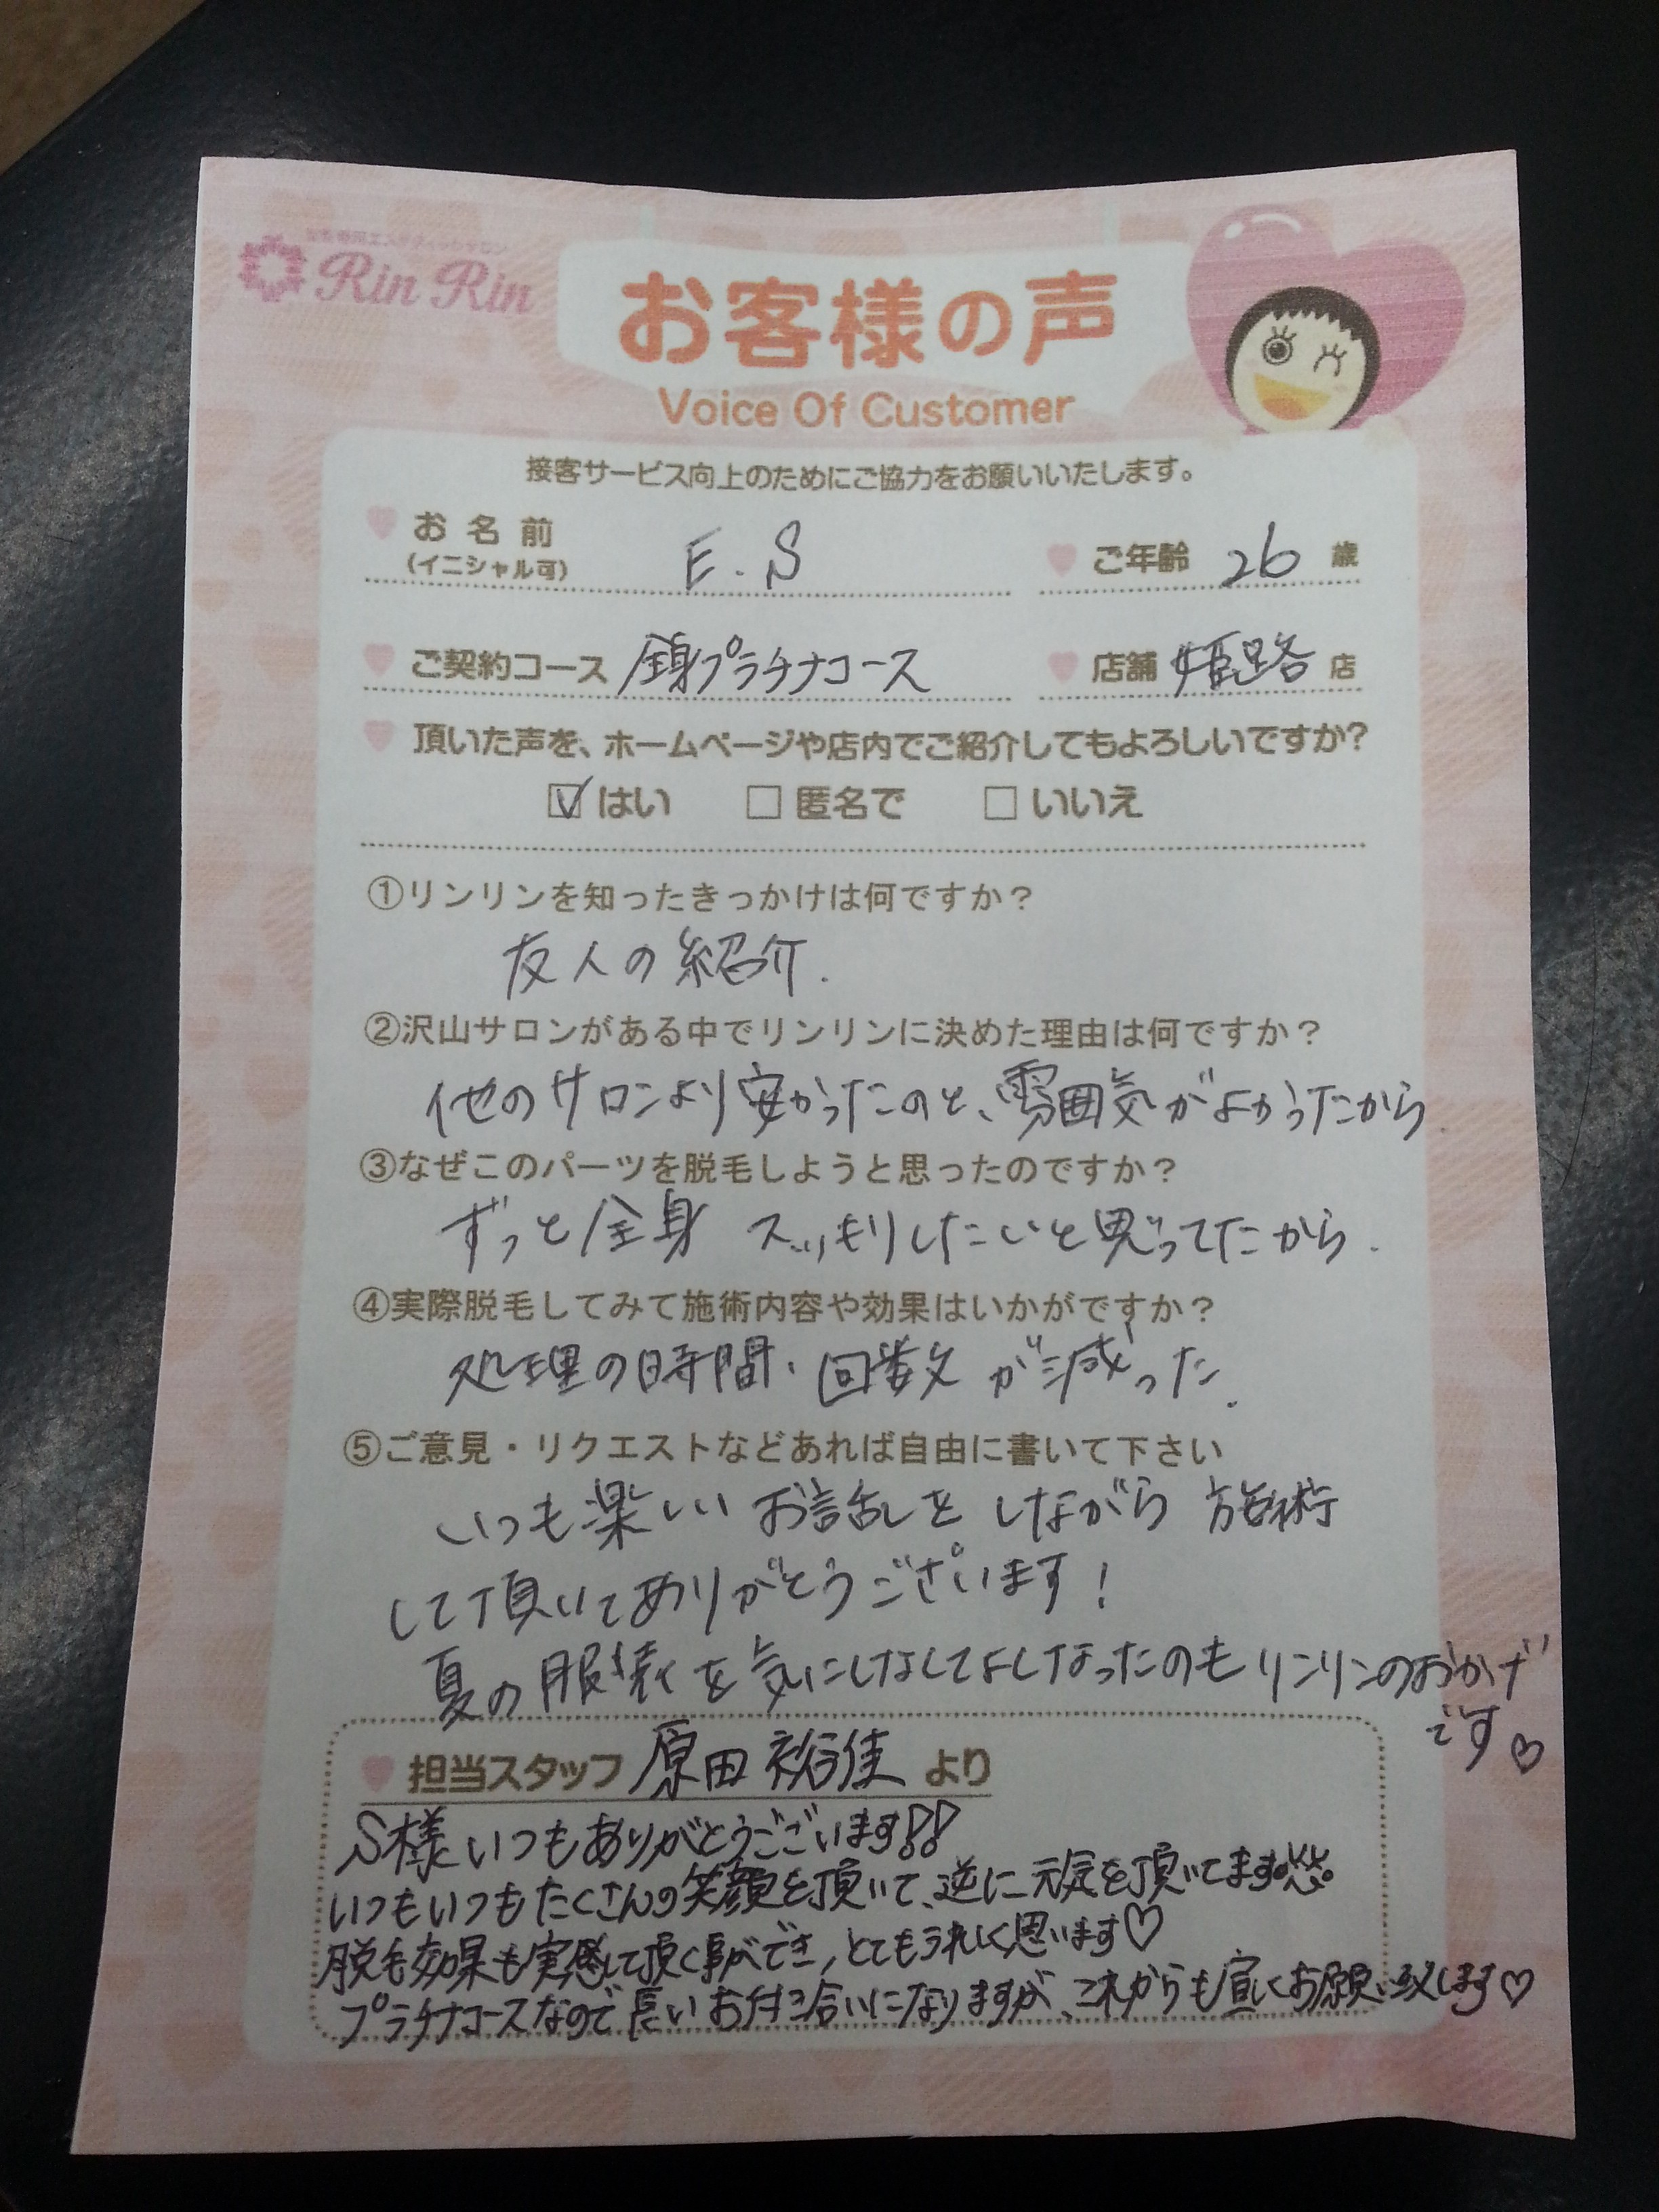 脱毛専門エステティックサロン
Rin Rin
お客様の声
Voice Of Customer
接客サービス向上のためにご協力をお願いいたします。
お名前 E.S ご年齢 26 歳
(イニシャル可)
ご契約コース 全身プラチナコース 店舗 姫路 店
頂いた声を、ホームページや店内でご紹介してもよろしいですか?
はい 匿名で いいえ
①リンリンを知ったきっかけは何ですか?
友人の紹介.
②沢山サロンがある中でリンリンに決めた理由は何ですか?
他のサロンより安かったのと、雰囲気がよかったから
③なぜこのパーツを脱毛しようと思ったのですか?
ずっと全身 スッキリしたいと思ってたから.
④実際脱毛してみて施術内容や効果はいかがですか?
処理の時間・回数が減った.
⑤ご意見・リクエストなどあれば自由に書いて下さい
いつも楽しいお話しをしながら 施術
して頂いてありがとうございます!
夏の服装を気にしなくてよくなったのもリンリンのおかげ
です♡
担当スタッフ 原田 裕佳 より
S様いつもありがとうございます!!
いつもいつもたくさんの笑顔を頂いて、逆に元気を頂いてます
脱毛効果も実感して頂く事ができ、とてもうれしく思います♡
プラチナコースなので長いお付き合いになりますが、これからも宜しくお願い致します♡